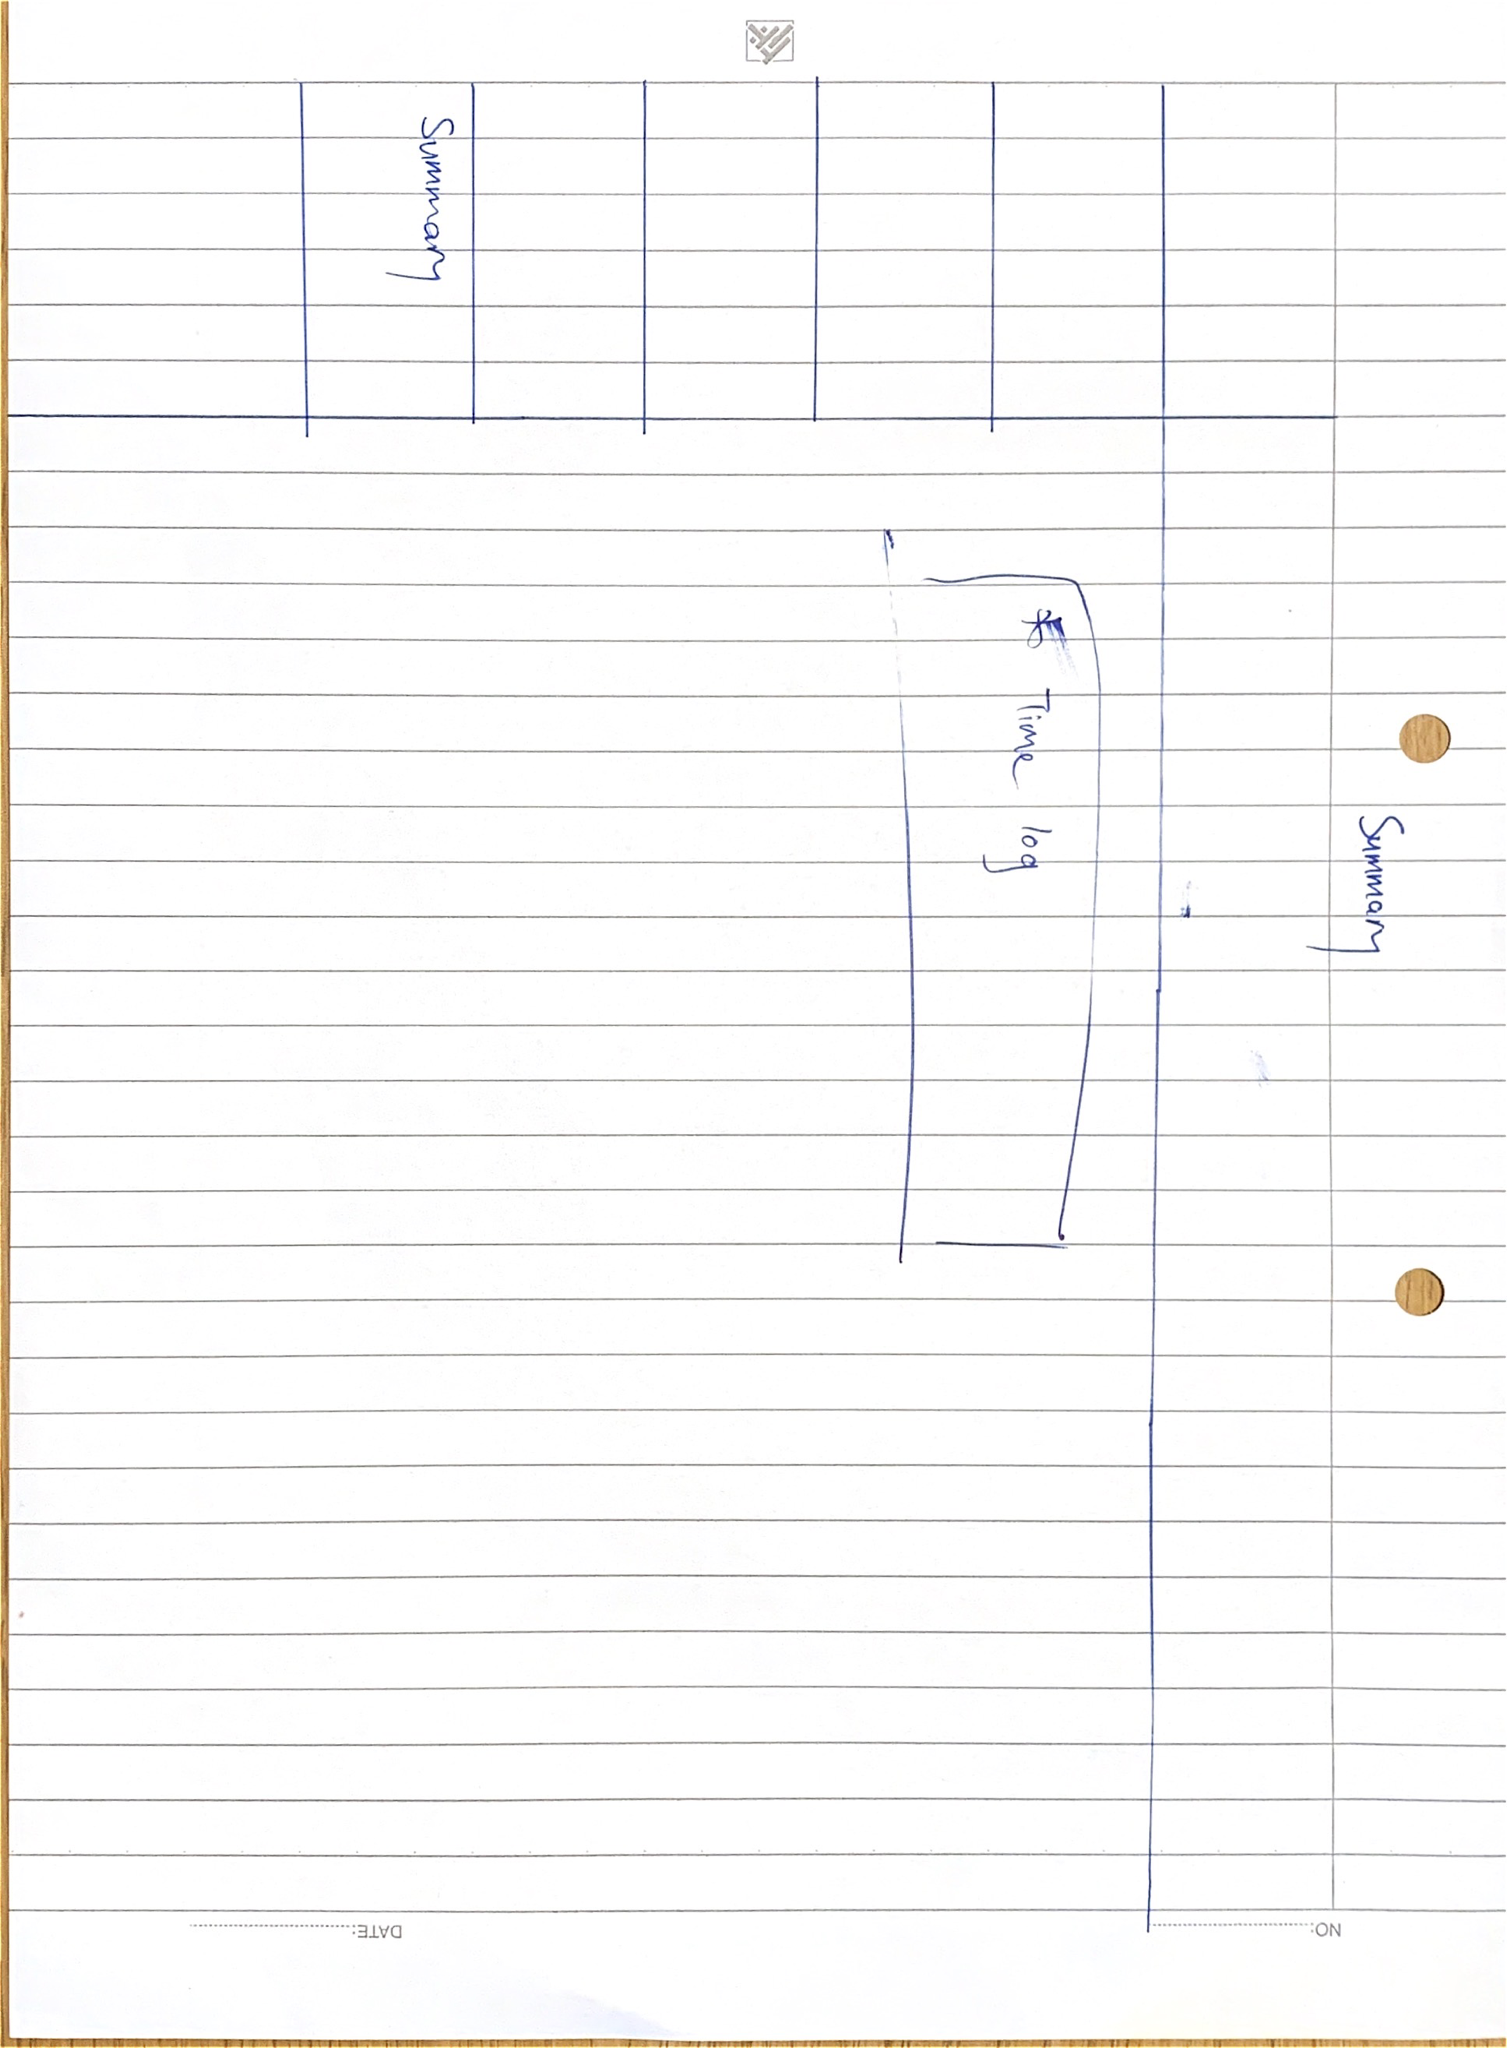 Summary
* Time log
Summary
NO:
DATE: